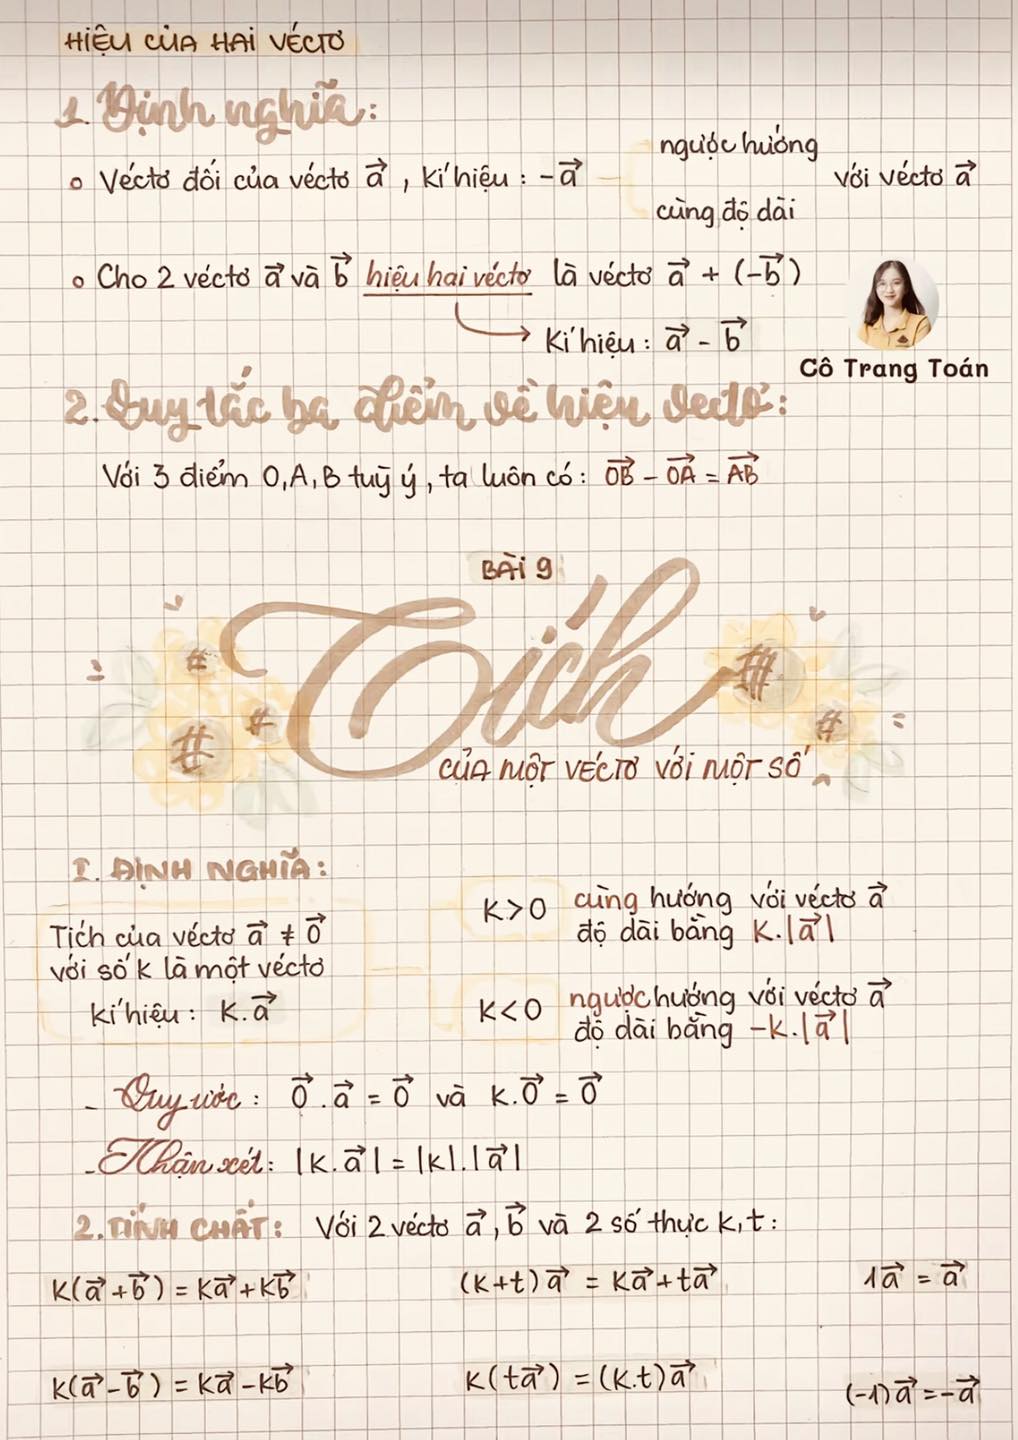 HIỆU CỦA HAI VÉCTƠ
1. Định nghĩa:
Véctơ đối của véctơ a⃗ , Kí hiệu : -a⃗ ngược hướng cùng độ dài với véctơ a⃗
Cho 2 véctơ a⃗ và b⃗ hiệu hai véctơ là véctơ a⃗ + (-b⃗)
Kí hiệu : a⃗ - b⃗
Cô Trang Toán
2. Quy tắc ba điểm về hiệu vectơ:
Với 3 điểm O, A, B tuỳ ý, ta luôn có: OB⃗ - OA⃗ = AB⃗
BÀI 9
Tích
CỦA MỘT VÉCTƠ VỚI MỘT SỐ
I. ĐỊNH NGHĨA:
Tích của véctơ a⃗ ≠ 0⃗
với số k là một véctơ
kí hiệu: K.a⃗
K>0 cùng hướng với véctơ a⃗
độ dài bằng K.|a⃗|
K<0 ngược hướng với véctơ a⃗
độ dài bằng -K.|a⃗|
- Quy ước : 0⃗ . a⃗ = 0⃗ và K.0⃗ = 0⃗
- Nhận xét: |K.a⃗| = |K|.|a⃗|
2. TÍNH CHẤT: Với 2 véctơ a⃗, b⃗ và 2 số thực K, t :
K(a⃗+b⃗) = Ka⃗+Kb⃗ (K+t)a⃗ = Ka⃗+ta⃗ 1a⃗ = a⃗
K(a⃗-b⃗) = Ka⃗-Kb⃗ K(ta⃗) = (K.t)a⃗ (-1)a⃗ = -a⃗